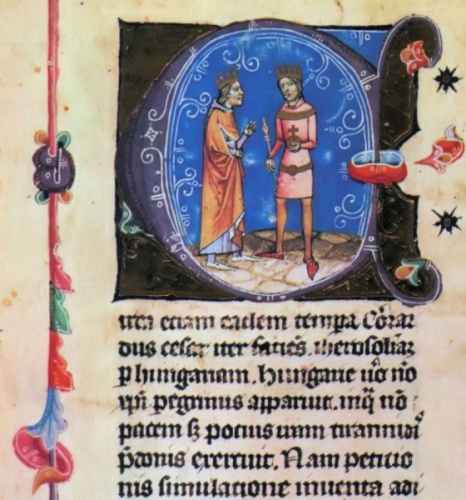 Circa eciam eadem tempa. Cōrar
dus cesar iter faciēs. iherosolīaʒ
ꝑ hungariam. Hungarie u̾o nō
xp̄i pegrinus apparuit. inq̄ nō
pacem sʒ pocius iram tirannidi
p̄donis exercuit. Nam peticio
nis simulacione inuenta adi